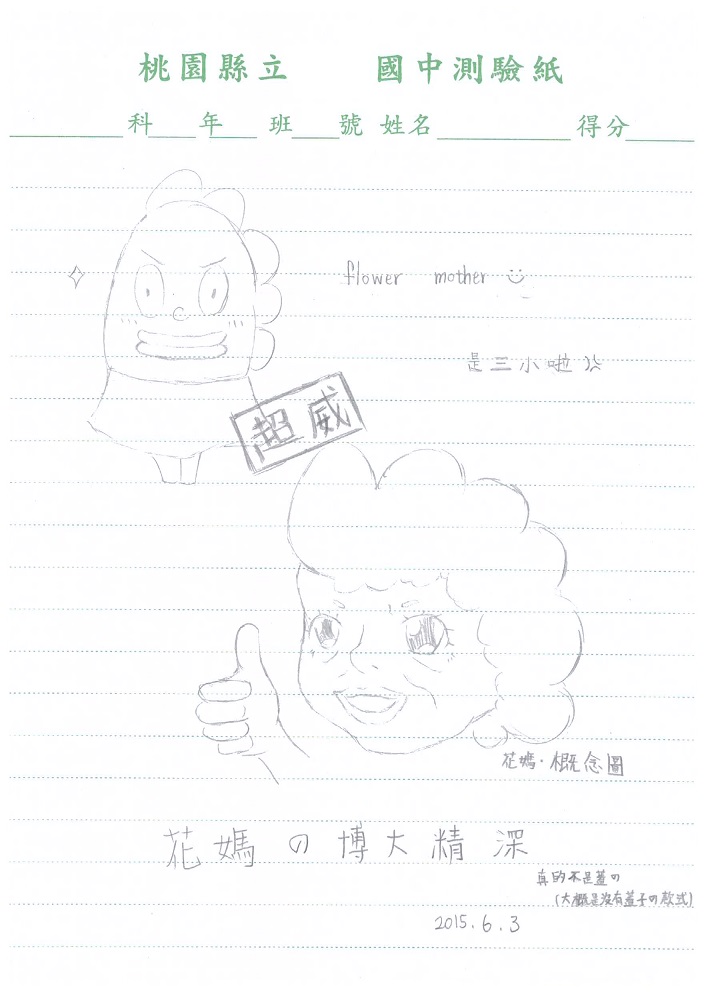 桃園縣立 國中測驗紙
科 年 班 號 姓名 得分
flower mother
是三小啦
超威
花媽·概念圖
花媽の博大精深
真的不是蓋の
(大概是沒有蓋子の款式)
2015.6.3